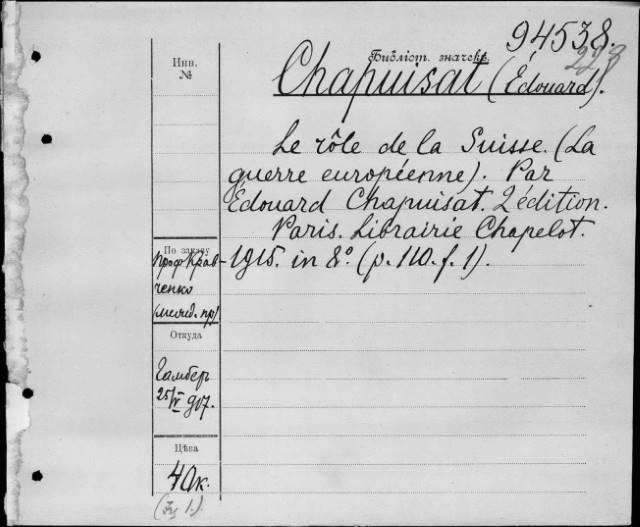 94538.
Инв.
№
Библіот. значекъ.
Chapuisat (Édouard).
Le rôle de la Suisse. (La
guerre européenne). Par
Édouard Chapuisat. 2 édition.
Paris. Librairie Chapelot.
1915. in 8º (p. 110. f. 1).
По заказу
Проф Крав-
ченко
Откуда
Гамбер
25/IV 917.
Цѣна
40 к.